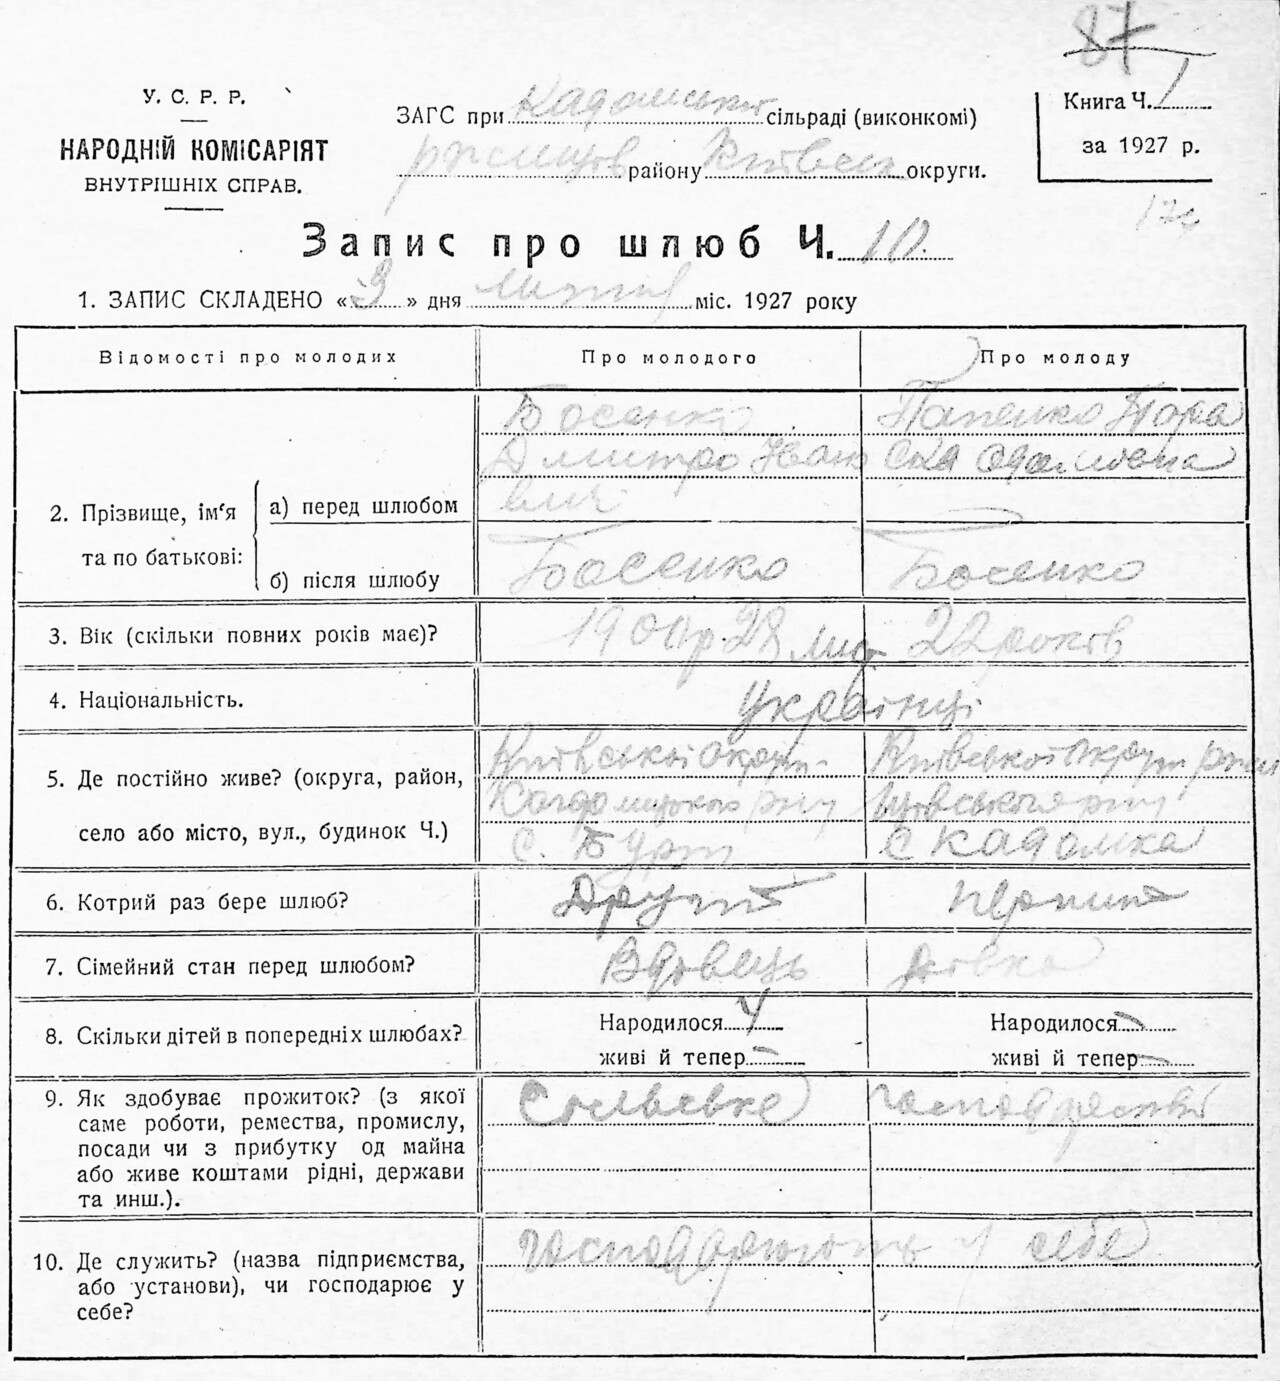 87
У. С. Р. Р.
НАРОДНІЙ КОМІСАРІЯТ
ВНУТРІШНІХ СПРАВ.
ЗАГС при Кадомській сільраді (виконкомі)
району Київськ округи.
Книга Ч. 1
за 1927 р.
174
Запис про шлюб Ч. 10
1. ЗАПИС СКЛАДЕНО « 3 » дня міс. 1927 року
Відомості про молодих
Про молодого
Про молоду
2. Прізвище, ім'я та по батькові:
а) перед шлюбом
Босенко
Дмитро Івано
вич
Папенко Пора
ска
б) після шлюбу
Босенко
Босенко
3. Вік (скільки повних років має)?
1900 р. 28 лист
22 років
4. Національність.
українці
5. Де постійно живе? (округа, район,
село або місто, вул., будинок Ч.)
Київської округи
Кагарлицького рну
с. Бурти
Київської округи ржи
щівського рну
с Кадомка
6. Котрий раз бере шлюб?
Другий
перший
7. Сімейний стан перед шлюбом?
Вдовець
дівка
8. Скільки дітей в попередніх шлюбах?
Народилося 4
живі й тепер –
Народилося –
живі й тепер –
9. Як здобуває прожиток? (з якої
саме роботи, ремества, промислу,
посади чи з прибутку од майна
або живе коштами рідні, держави
та инш.).
Сільське господарство
10. Де служить? (назва підприємства,
або установи), чи господарює у
себе?
господарюють у себе